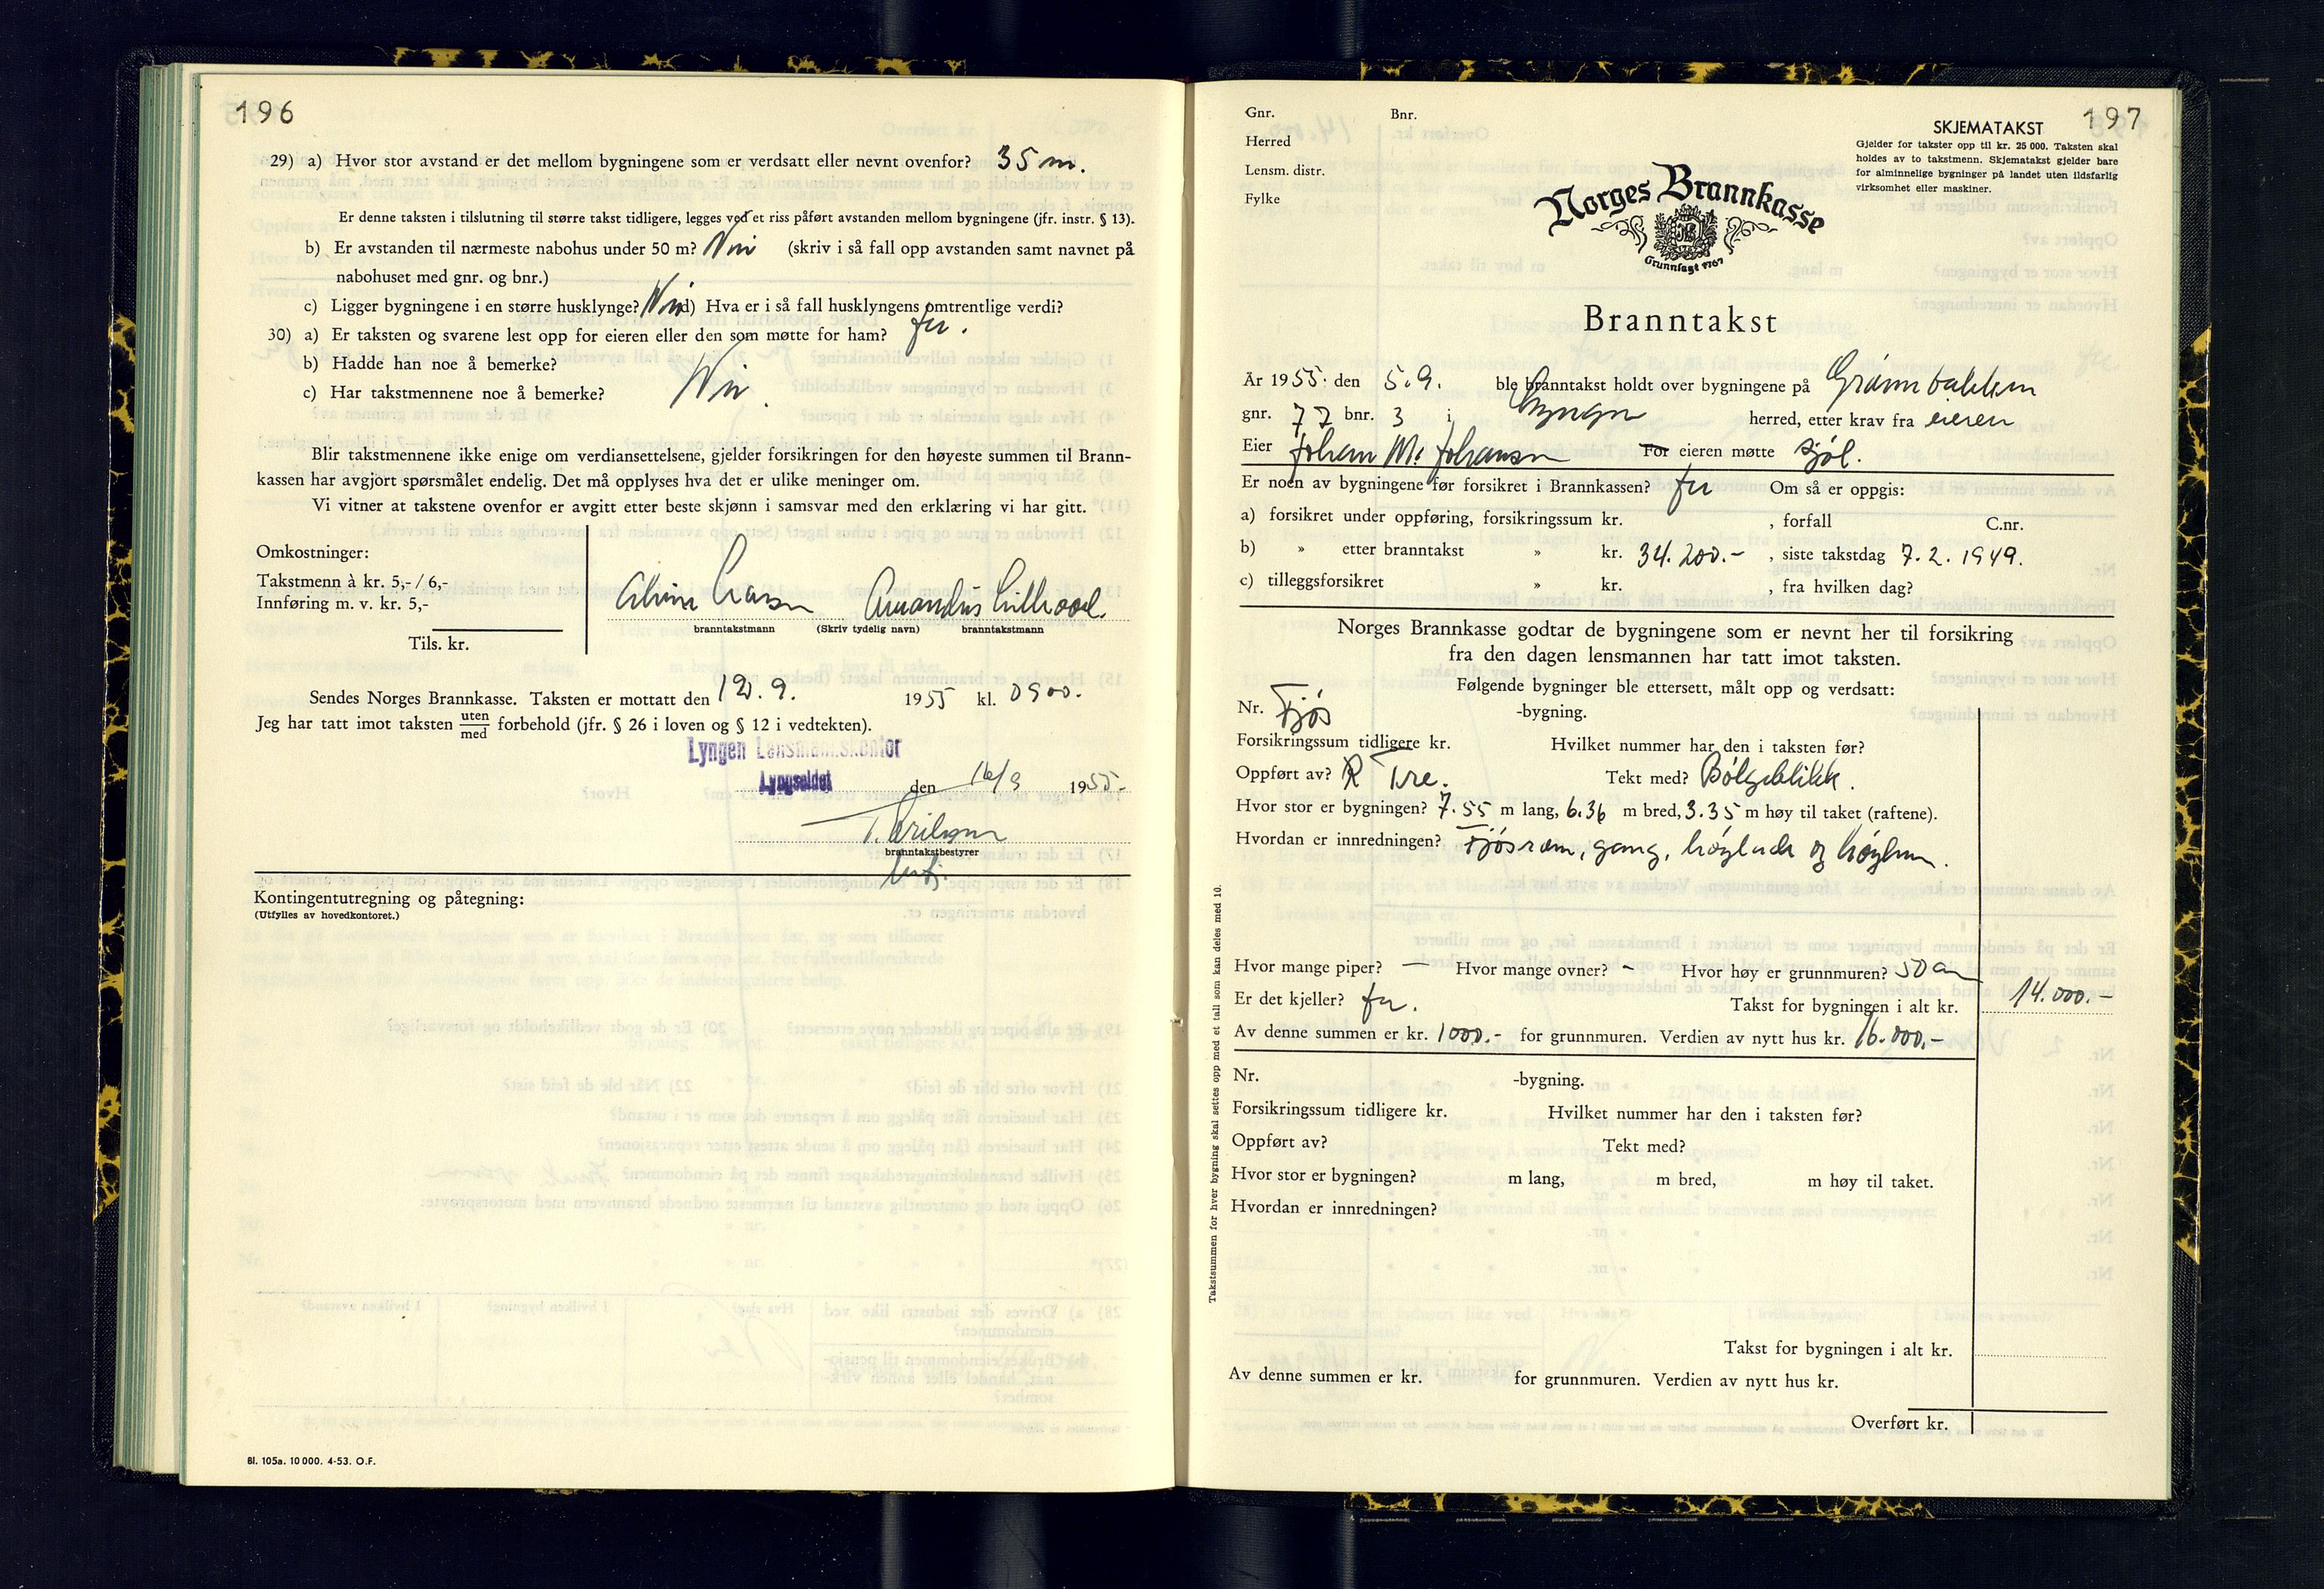 196
29) a) Hvor stor avstand er det mellom bygningene som er verdsatt eller nevnt ovenfor? 35 m.
Er denne taksten i tilslutning til større takst tidligere, legges ved et riss påført avstanden mellom bygningene (jfr. instr. § 13).
b) Er avstanden til nærmeste nabohus under 50 m? Nei (skriv i så fall opp avstanden samt navnet på
nabohuset med gnr. og bnr.)
c) Ligger bygningene i en større husklynge? Nei d) Hva er i så fall husklyngens omtrentlige verdi?
30) a) Er taksten og svarene lest opp for eieren eller den som møtte for ham? Ja.
b) Hadde han noe å bemerke?
c) Har takstmennene noe å bemerke? Nei.
Blir takstmennene ikke enige om verdiansettelsene, gjelder forsikringen for den høyeste summen til Brann-
kassen har avgjort spørsmålet endelig. Det må opplyses hva det er ulike meninger om.
Vi vitner at takstene ovenfor er avgitt etter beste skjønn i samsvar med den erklæring vi har gitt.
Omkostninger:
Takstmenn à kr. 5,- / 6,-
Innføring m. v. kr. 5,-
Tils. kr.
Larsen Amandus Lillevoll
branntakstmann (Skriv tydelig navn) branntakstmann
Sendes Norges Brannkasse. Taksten er mottatt den 12. 9. 1955 kl. 0900.
Jeg har tatt imot taksten uten/med forbehold (jfr. § 26 i loven og § 12 i vedtekten).
Lyngen Lensmannskontor
Lyngseidet den 16/9 1955.
branntakstbestyrer
Kontingentutregning og påtegning:
(Utfylles av hovedkontoret.)
Bl. 105a. 10 000. 4-53. O.F.
197
Gnr. Bnr.
Herred
Lensm. distr.
Fylke
SKJEMATAKST
Gjelder for takster opp til kr. 25 000. Taksten skal
holdes av to takstmenn. Skjematakst gjelder bare
for alminnelige bygninger på landet uten ildsfarlig
virksomhet eller maskiner.
Norges Brannkasse
Grunnlagt 1767
Branntakst
År 1955: den 5.9. ble branntakst holdt over bygningene på Grønnbakken
gnr. 77 bnr. 3 i Lyngen herred, etter krav fra eieren
Eier Johan M. Johansen For eieren møtte sjøl.
Er noen av bygningene før forsikret i Brannkassen? Ja Om så er oppgis:
a) forsikret under oppføring, forsikringssum kr. , forfall C.nr.
b) » etter branntakst » kr. 34.200.- , siste takstdag 7. 2. 1949.
c) tilleggsforsikret » kr. , fra hvilken dag?
Norges Brannkasse godtar de bygningene som er nevnt her til forsikring
fra den dagen lensmannen har tatt imot taksten.
Følgende bygninger ble ettersett, målt opp og verdsatt:
Nr. Fjøs -bygning.
Forsikringssum tidligere kr. Hvilket nummer har den i taksten før?
Oppført av? Tre. Tekt med? Bølgeblikk.
Hvor stor er bygningen? 7.55 m lang, 6.36 m bred, 3.35 m høy til taket (raftene).
Hvordan er innredningen? Fjøsrom, gang, høylade og høylem.
Hvor mange piper? — Hvor mange ovner? - Hvor høy er grunnmuren? 50 cm
Er det kjeller? Ja. Takst for bygningen i alt kr. 14.000.-
Av denne summen er kr. 1000.- for grunnmuren. Verdien av nytt hus kr. 16.000,-
Nr. -bygning.
Forsikringssum tidligere kr. Hvilket nummer har den i taksten før?
Oppført av? Tekt med?
Hvor stor er bygningen? m lang, m bred, m høy til taket.
Hvordan er innredningen?
Takst for bygningen i alt kr.
Av denne summen er kr. for grunnmuren. Verdien av nytt hus kr.
Overført kr.
Takstsummen for hver bygning skal settes opp med et tall som kan deles med 10.